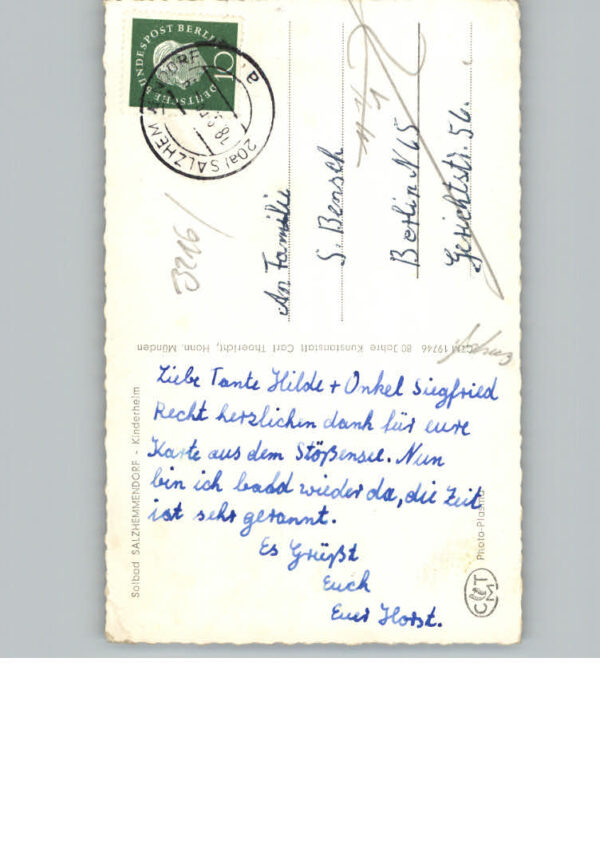 Liebe Tante Hilde + Onkel Siegfried
Recht herzlichen dank für eure
Karte aus dem Stößensee. Nun
bin ich badd wieder da, die Zeit
ist sehr gerannt.
Es Grüßt
Euch
Euer Horst.
An Familie
S. Bensch
Berlin N 65
Gerichtstr. 56.
DEUTSCHE BUNDESPOST BERLIN
10
20a SALZHEMMENDORF
a
18
3216/
19746 80 Jahre Kunstanstalt Carl Thoericht, Hann. Münden
Solbad SALZHEMMENDORF - Kinderheim
Photo-Plasma
CTM